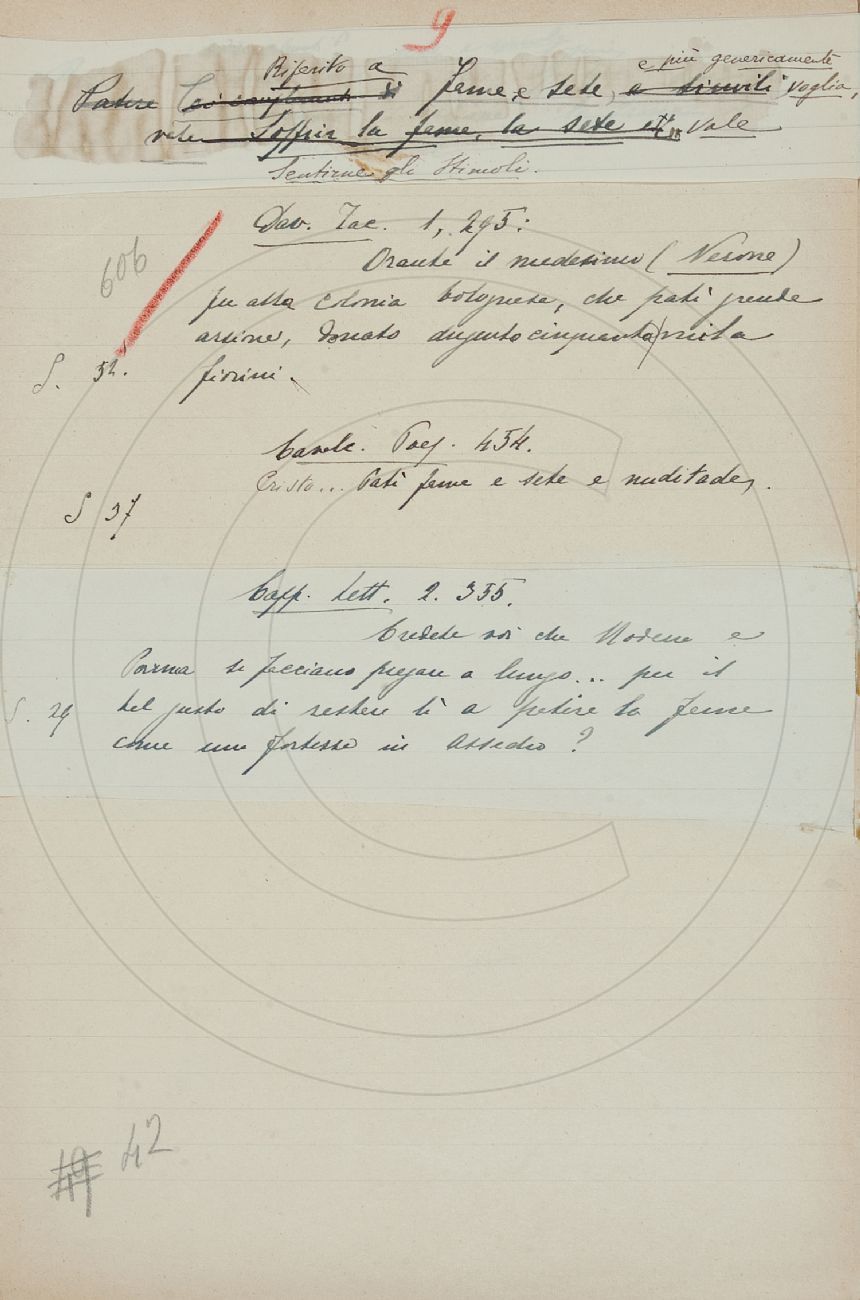 9
Riferito a e più genericamente
Patire fame e sete, e simili voglia,
vale Soffrir la fame, la sete vale
Sentirne gli stimoli.
Dav. Tac. 1, 295:
Orante il medesimo (Nerone)
606
fu alla colonia bolognese, che patì grande
arsione, donato dugentocinquantamila
S. 52. fiorini.
Cavalc. Pag. 454.
Cristo... Patì fame e sete e nuditade,.
S 37
Capp. Lett. 2. 355.
Credete voi che Modena e
Parma si facciano pregare a lungo... per il
S. 29 bel gusto di restare lì a patire la fame
come una fortezza in assedio?
42
49